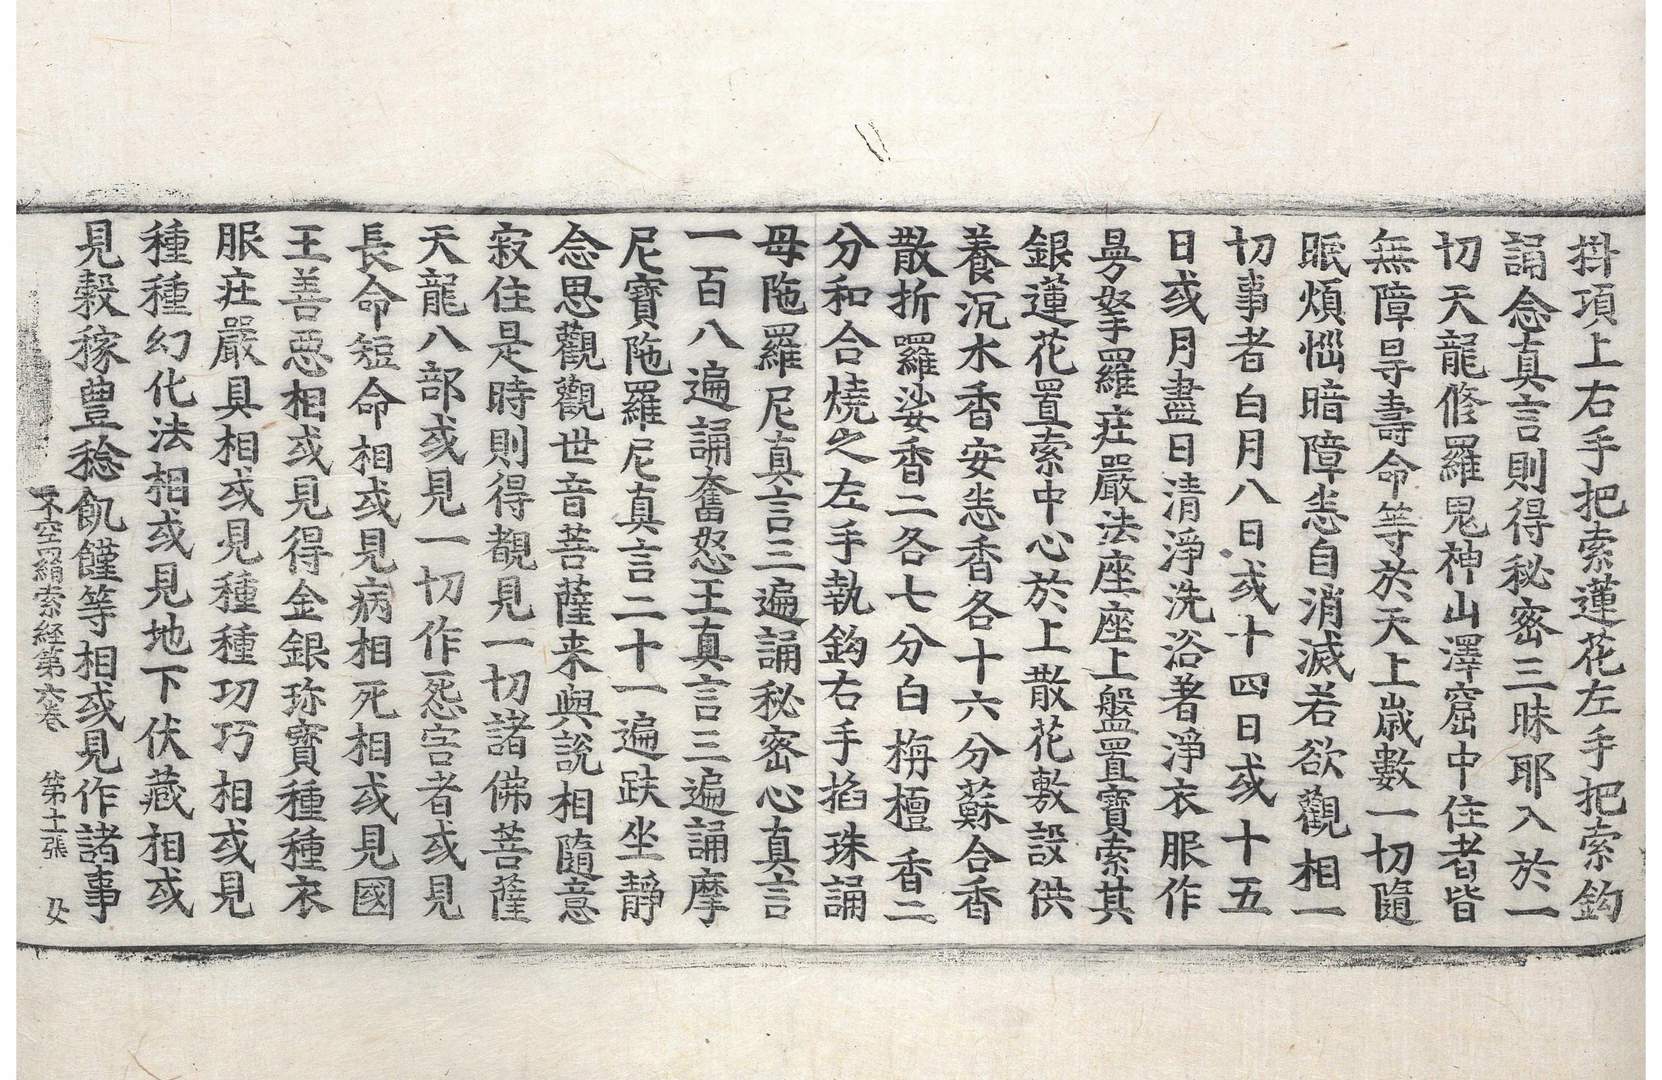 掛項上右手把索蓮花左手把索鈎
誦念真言則得秘密三昧耶入於一
切天龍修羅鬼神山澤窟中住者皆
無障㝵壽命等於天上歲數一切隨
眠煩惱暗障恙自消滅若欲觀相一
切事者白月八日或十四日或十五
日或月盡日清淨洗浴著淨衣服作
曼拏羅莊嚴法座座上盤置寶索其
銀蓮花置索中心於上散花敷設供
養沉水香安悉香各十六分蘇合香
散折羅娑香二各七分白栴檀香二
分和合燒之左手執鈎右手掐珠誦
母陁羅尼真言三遍誦秘密心真言
一百八遍誦奮怒王真言三遍誦摩
尼寶陁羅尼真言二十一遍趺坐靜
念思觀觀世音菩薩来與說相隨意
寂住是時則得覩見一切諸佛菩薩
天龍八部或見一切作怨害者或見
長命短命相或見病相死相或見國
王善惡相或見得金銀珎寶種種衣
服莊嚴具相或見種種功巧相或見
種種幻化法相或見地下伏藏相或
見穀稼豊稔飢饉等相或見作諸事
不空羂索経第六卷 第十二張 女